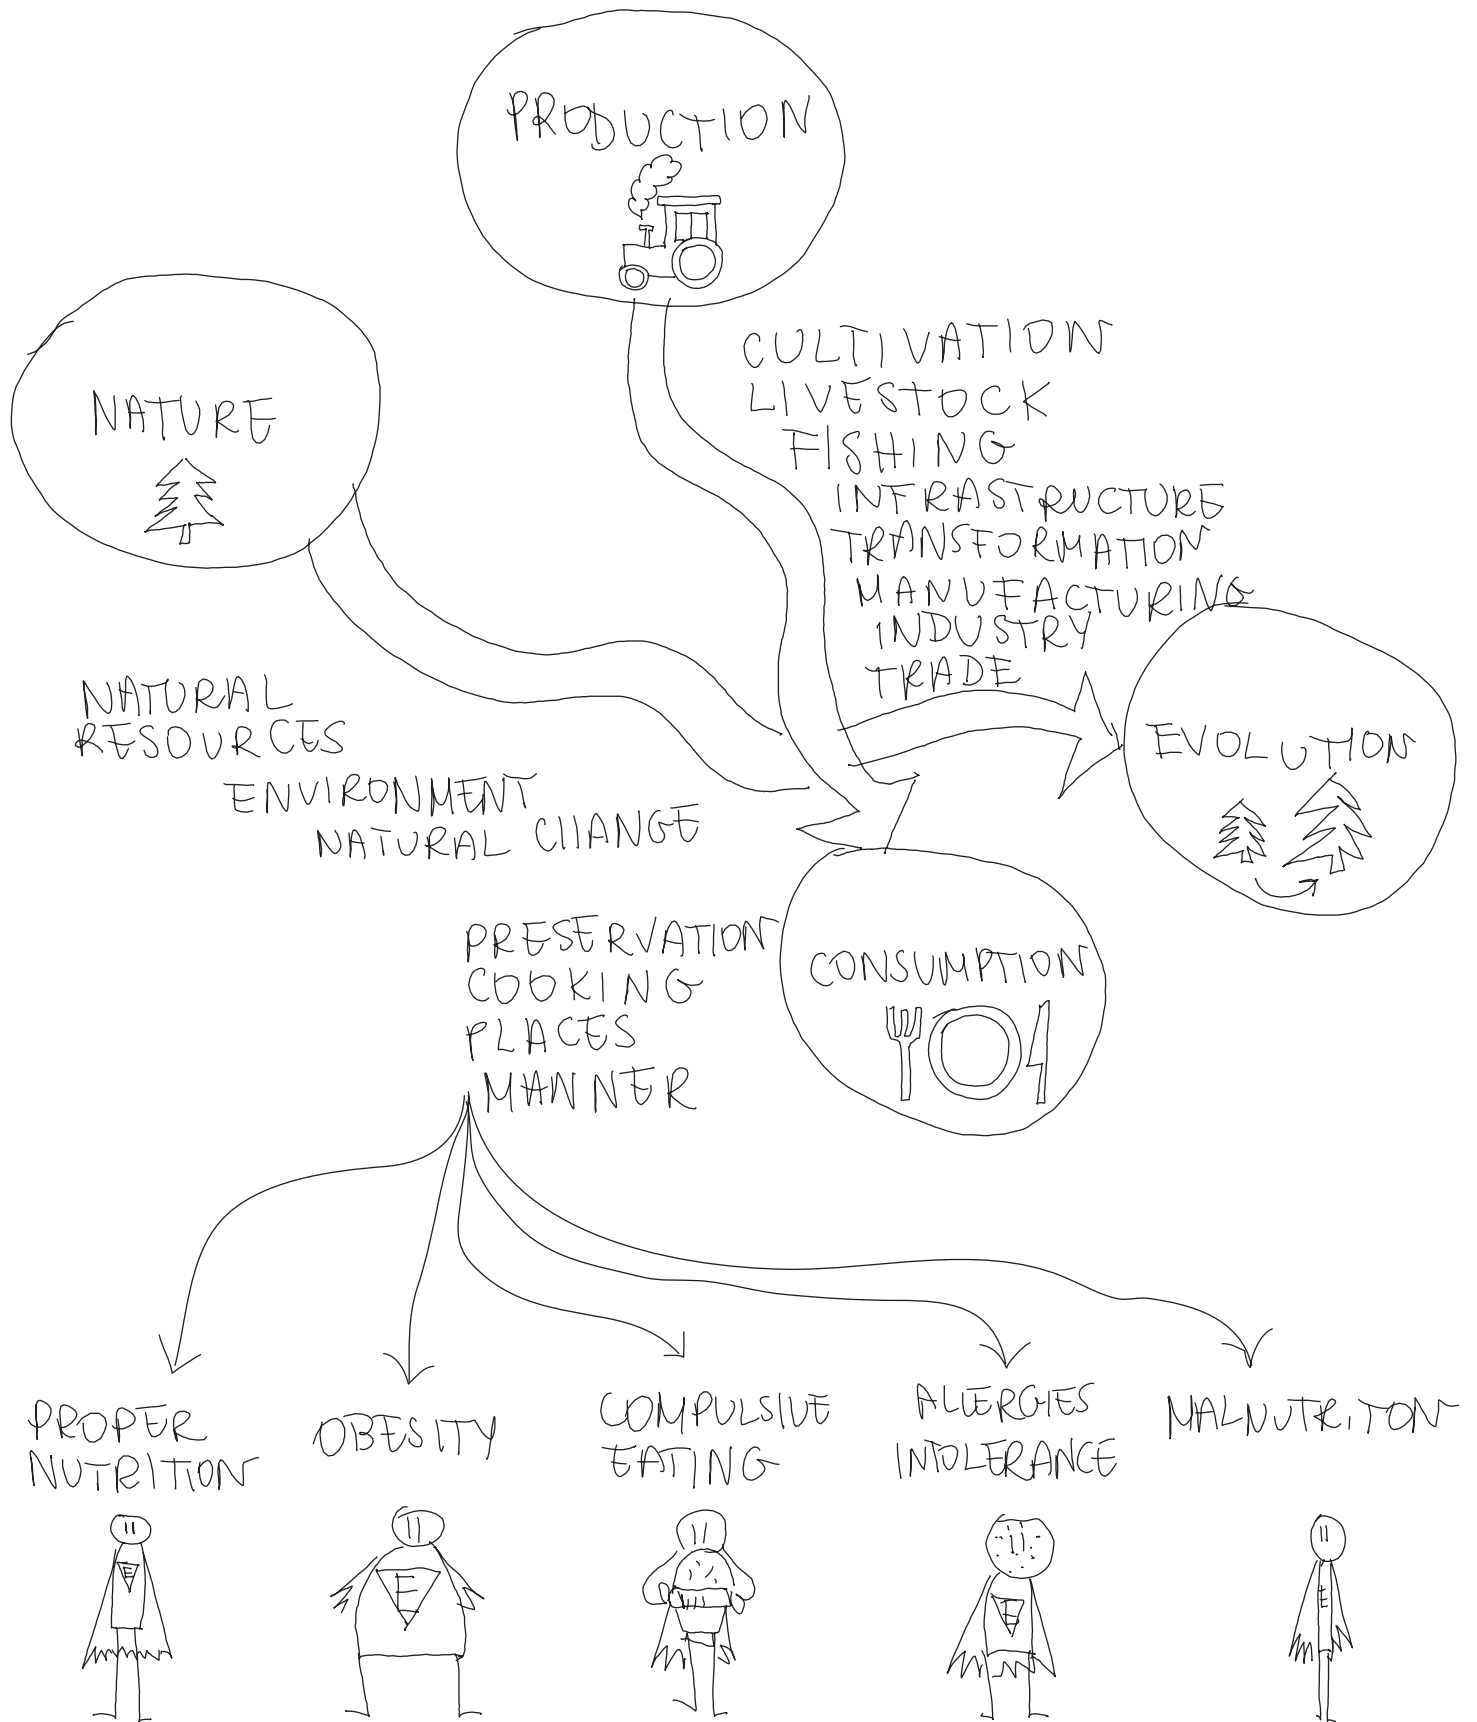 PRODUCTION
NATURE
CULTIVATION
LIVESTOCK
FISHING
INFRASTRUCTURE
TRANSFORMATION
MANUFACTURING
INDUSTRY
TRADE
NATURAL
RESOURCES
ENVIRONMENT
NATURAL CHANGE
EVOLUTION
PRESERVATION
COOKING
PLACES
MANNER
CONSUMPTION
PROPER
NUTRITION
OBESITY
COMPULSIVE
EATING
ALLERGIES
INTOLERANCE
MALNUTRITON
E
E
E
E